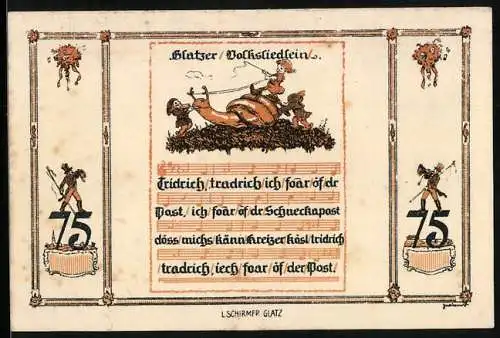 Glatzer / Volksliedlein /
Tridrich, tradrich / ich / foar / öf dr
Post, / ich / foar / öf / dr Schneckapost
döss / michs känn / kreizer kost / tridrich
tradrich, iech / foar / öf / der Post. /
75
75
L. SCHIRMER GLATZ